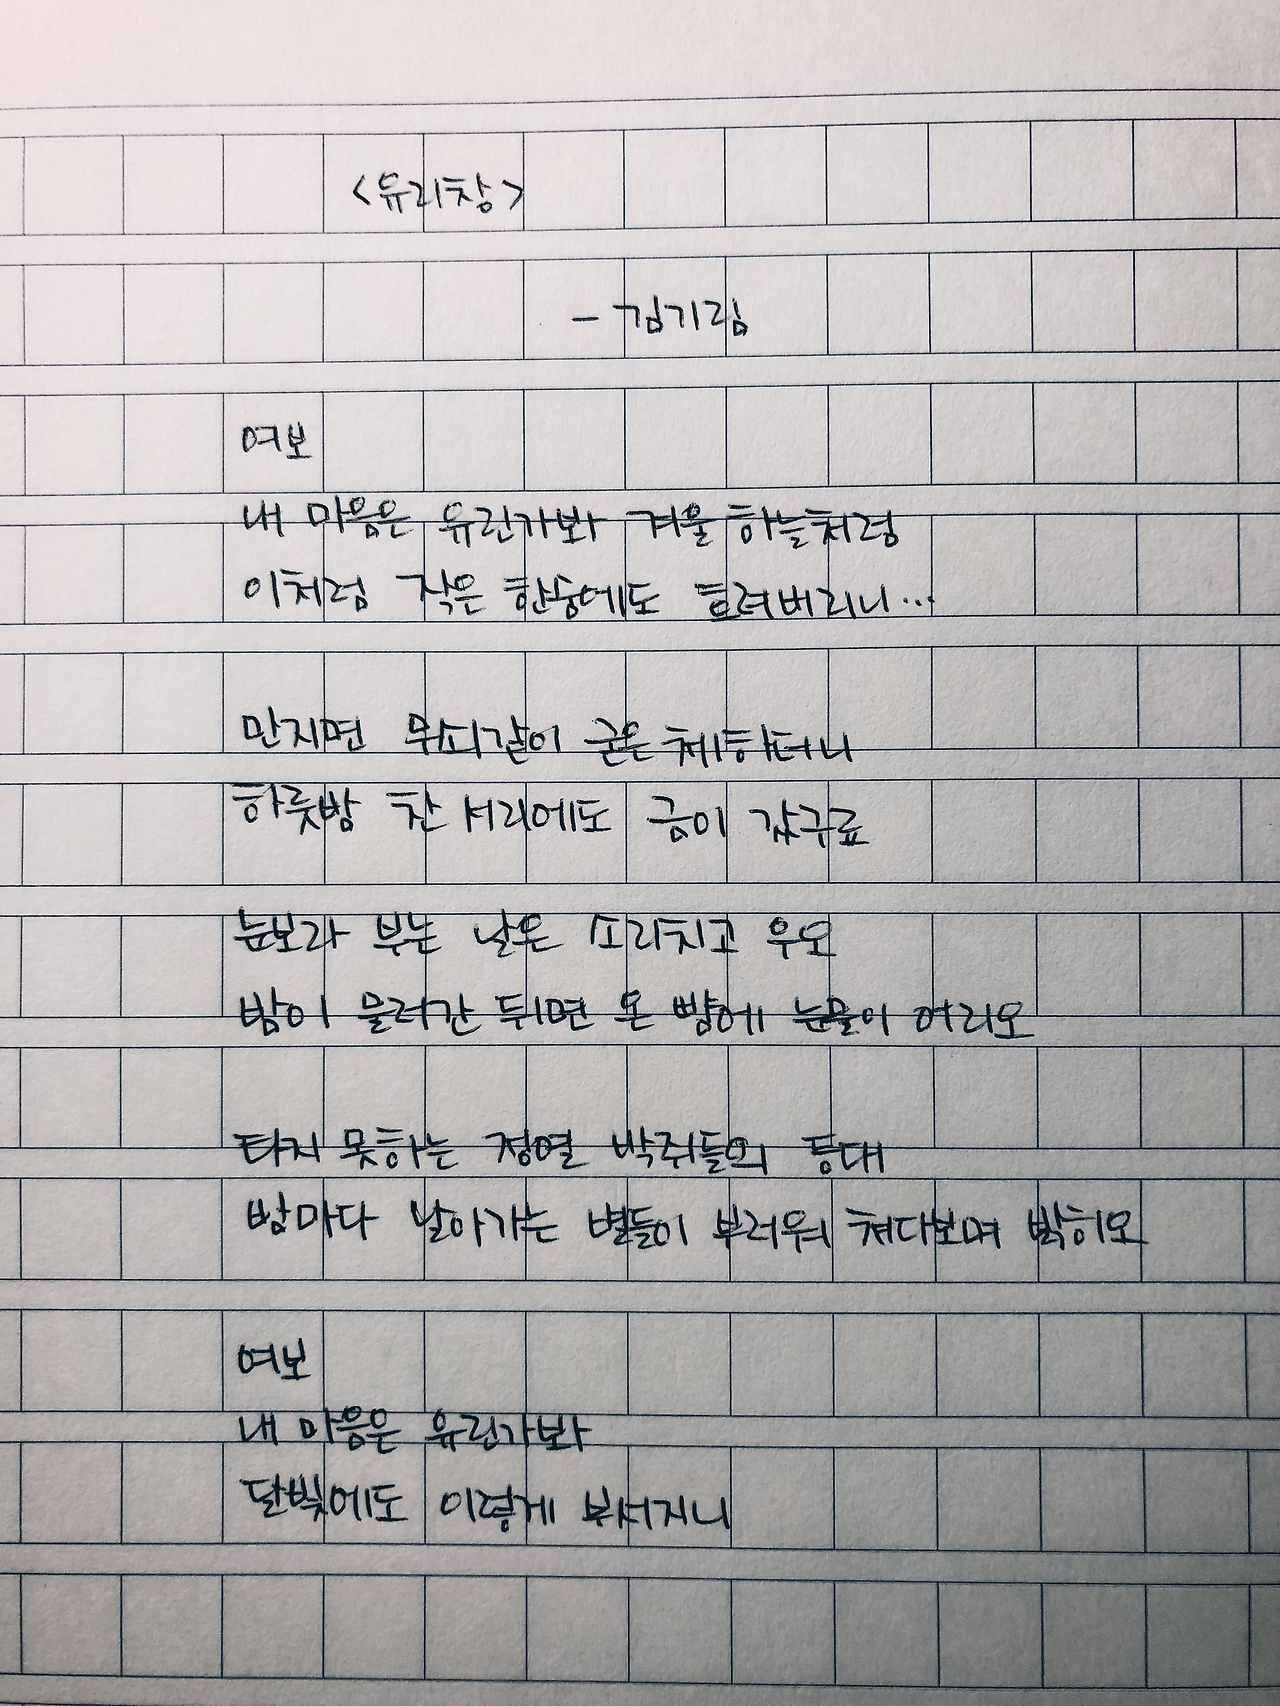 <유리창>
- 김기림
여보
내 마음은 유린가봐 겨울 하늘처럼
이처럼 작은 한숨에도 흐려버리니...
만지면 무쇠같이 굳은 체하더니
하룻밤 찬 서리에도 금이 갔구료
눈보라 부는 날은 소리치고 우오
밤이 물러간 뒤면 온 뺨에 눈물이 어리오
타지 못하는 정열 박쥐들의 등대
밤마다 날아가는 별들이 부러워 쳐다보며 밝히오
여보
내 마음은 유린가봐
달빛에도 이렇게 부서지니